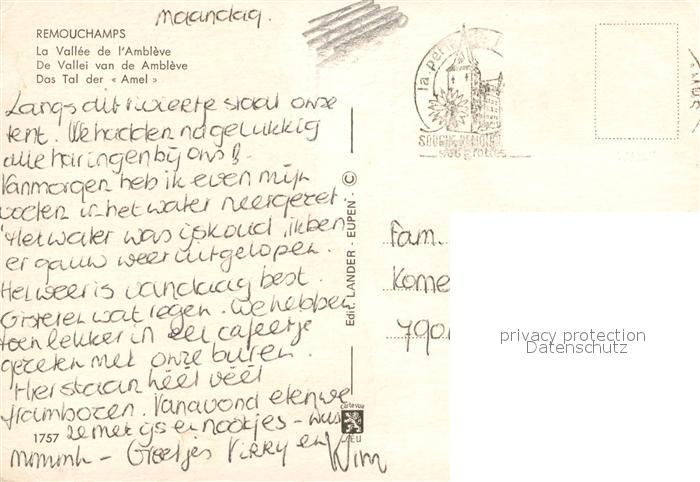 maandag.
REMOUCHAMPS
La Vallée de l'Amblève
De Vallei van de Amblève
Das Tal der « Amel »
Langs dit riviertje staat onze
tent. We hadden nog gelukkig
alle haringen bij ons!
Vanmorgen heb ik even mijn
voeten in het water neergezet.
Het water was ijskoud, ik ben
er gauw weer uitgelopen.
Het weer is vandaag best.
Gisteren wat regen. We hebben
toen lekker in een cafeetje
gezeten met onze buren.
Hier staan héél véél
frambozen. Vanavond eten we
ze met ijs en nootjes -
1757
mmmmh - Groetjes en Wim
Edit. LANDER - EUPEN - ©
la
Fam.
Kome
790
privacy protection
Datenschutz